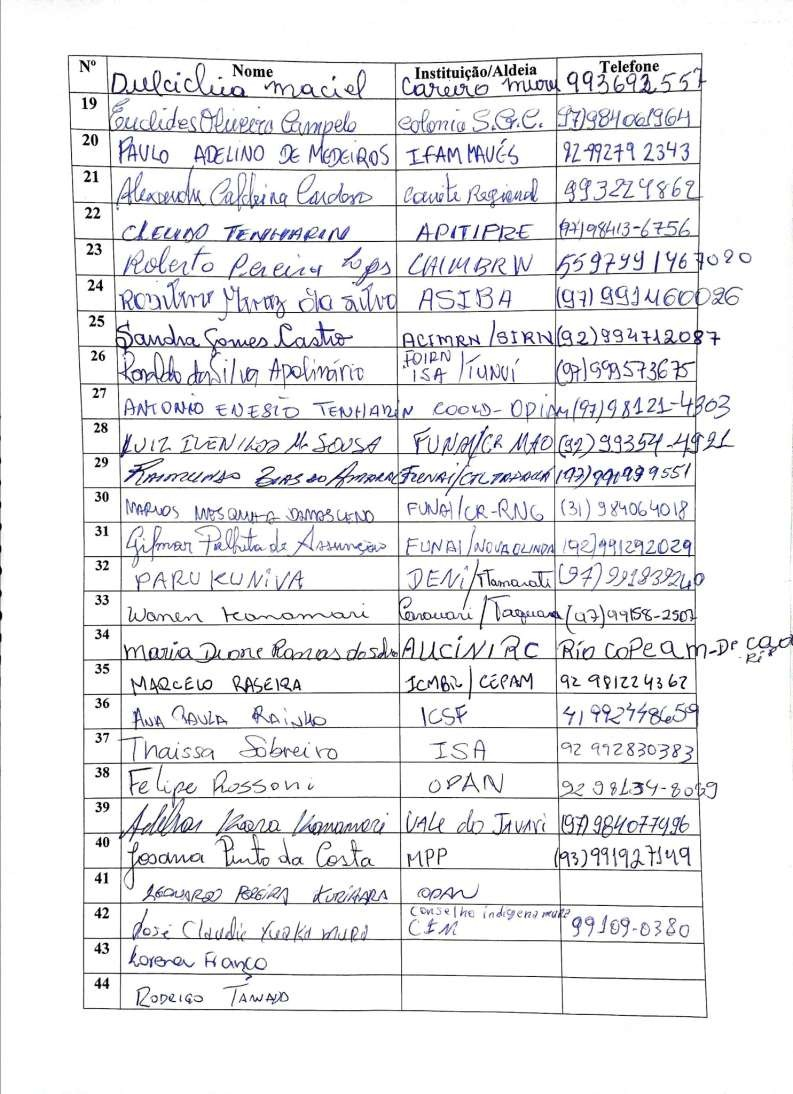 Nº Nome Instituição/Aldeia Telefone
maciel Careiro 993692557
19 Euclides Oliveira Campelo colonia S.G.C. (97)984061964
20 PAULO ADELINO DE MEDEIROS IFAM MAUÉS 92-99279 2343
21 Caldeira Cardoso Comite Regional 993224862
22 CLEUDO TENHARIN APITIPRE (97)98413-6756
23 Roberto Pereira Lopes CAIMBRN 5597991467020
24 da silva ASIBA (97) 991460026
25 Sandra Gomes Castro ACIMRN/SIRN (92)994712087
26 Ronaldo da Silva Apolinário FOIRN
ISA / TUNUÍ (97)999573675
27 ANTONIO ENESIO TENHARIN COORD- OPIAM (97)98121-4303
28 LUIZ M. SOUSA FUNAI/CR MAO (92)99354-4921
29 RAIMUNDO FUNAI/CTL (97)991999551
30 MARVOS MESQUITA DAMASCENO FUNAI/CR-RNG (31) 984064018
31 Gilmar Palheta de Assunção FUNAI/NOVA OLINDA (92)991292029
32 PARU KUNIVA DENI/Itamarati (97)991839240
33 Wanen Kanamari / Taquara (97)99158-2507
34 Maria Dione Ramos AUCINIRC Rio COPEAM-De
35 MARCELO RASEIRA ICMBIO/CEPAM 92 981224362
36 ANA PAULA RAINHO ICSF 41 992448659
37 Thaissa Sobreiro ISA 92 992830383
38 Felipe Rossoni OPAN 92 98134-8089
39 Kanamari VALE do JAVARI (97)984077496
40 Josana Pinto da Costa MPP (93)991927149
41 LEONARDO PEREIRA KURIHARA OPAN
42 José Claudio Yuaka mura Conselho indígena mura
CIM 99109-0380
43 Lorena Franco
44 RODRIGO